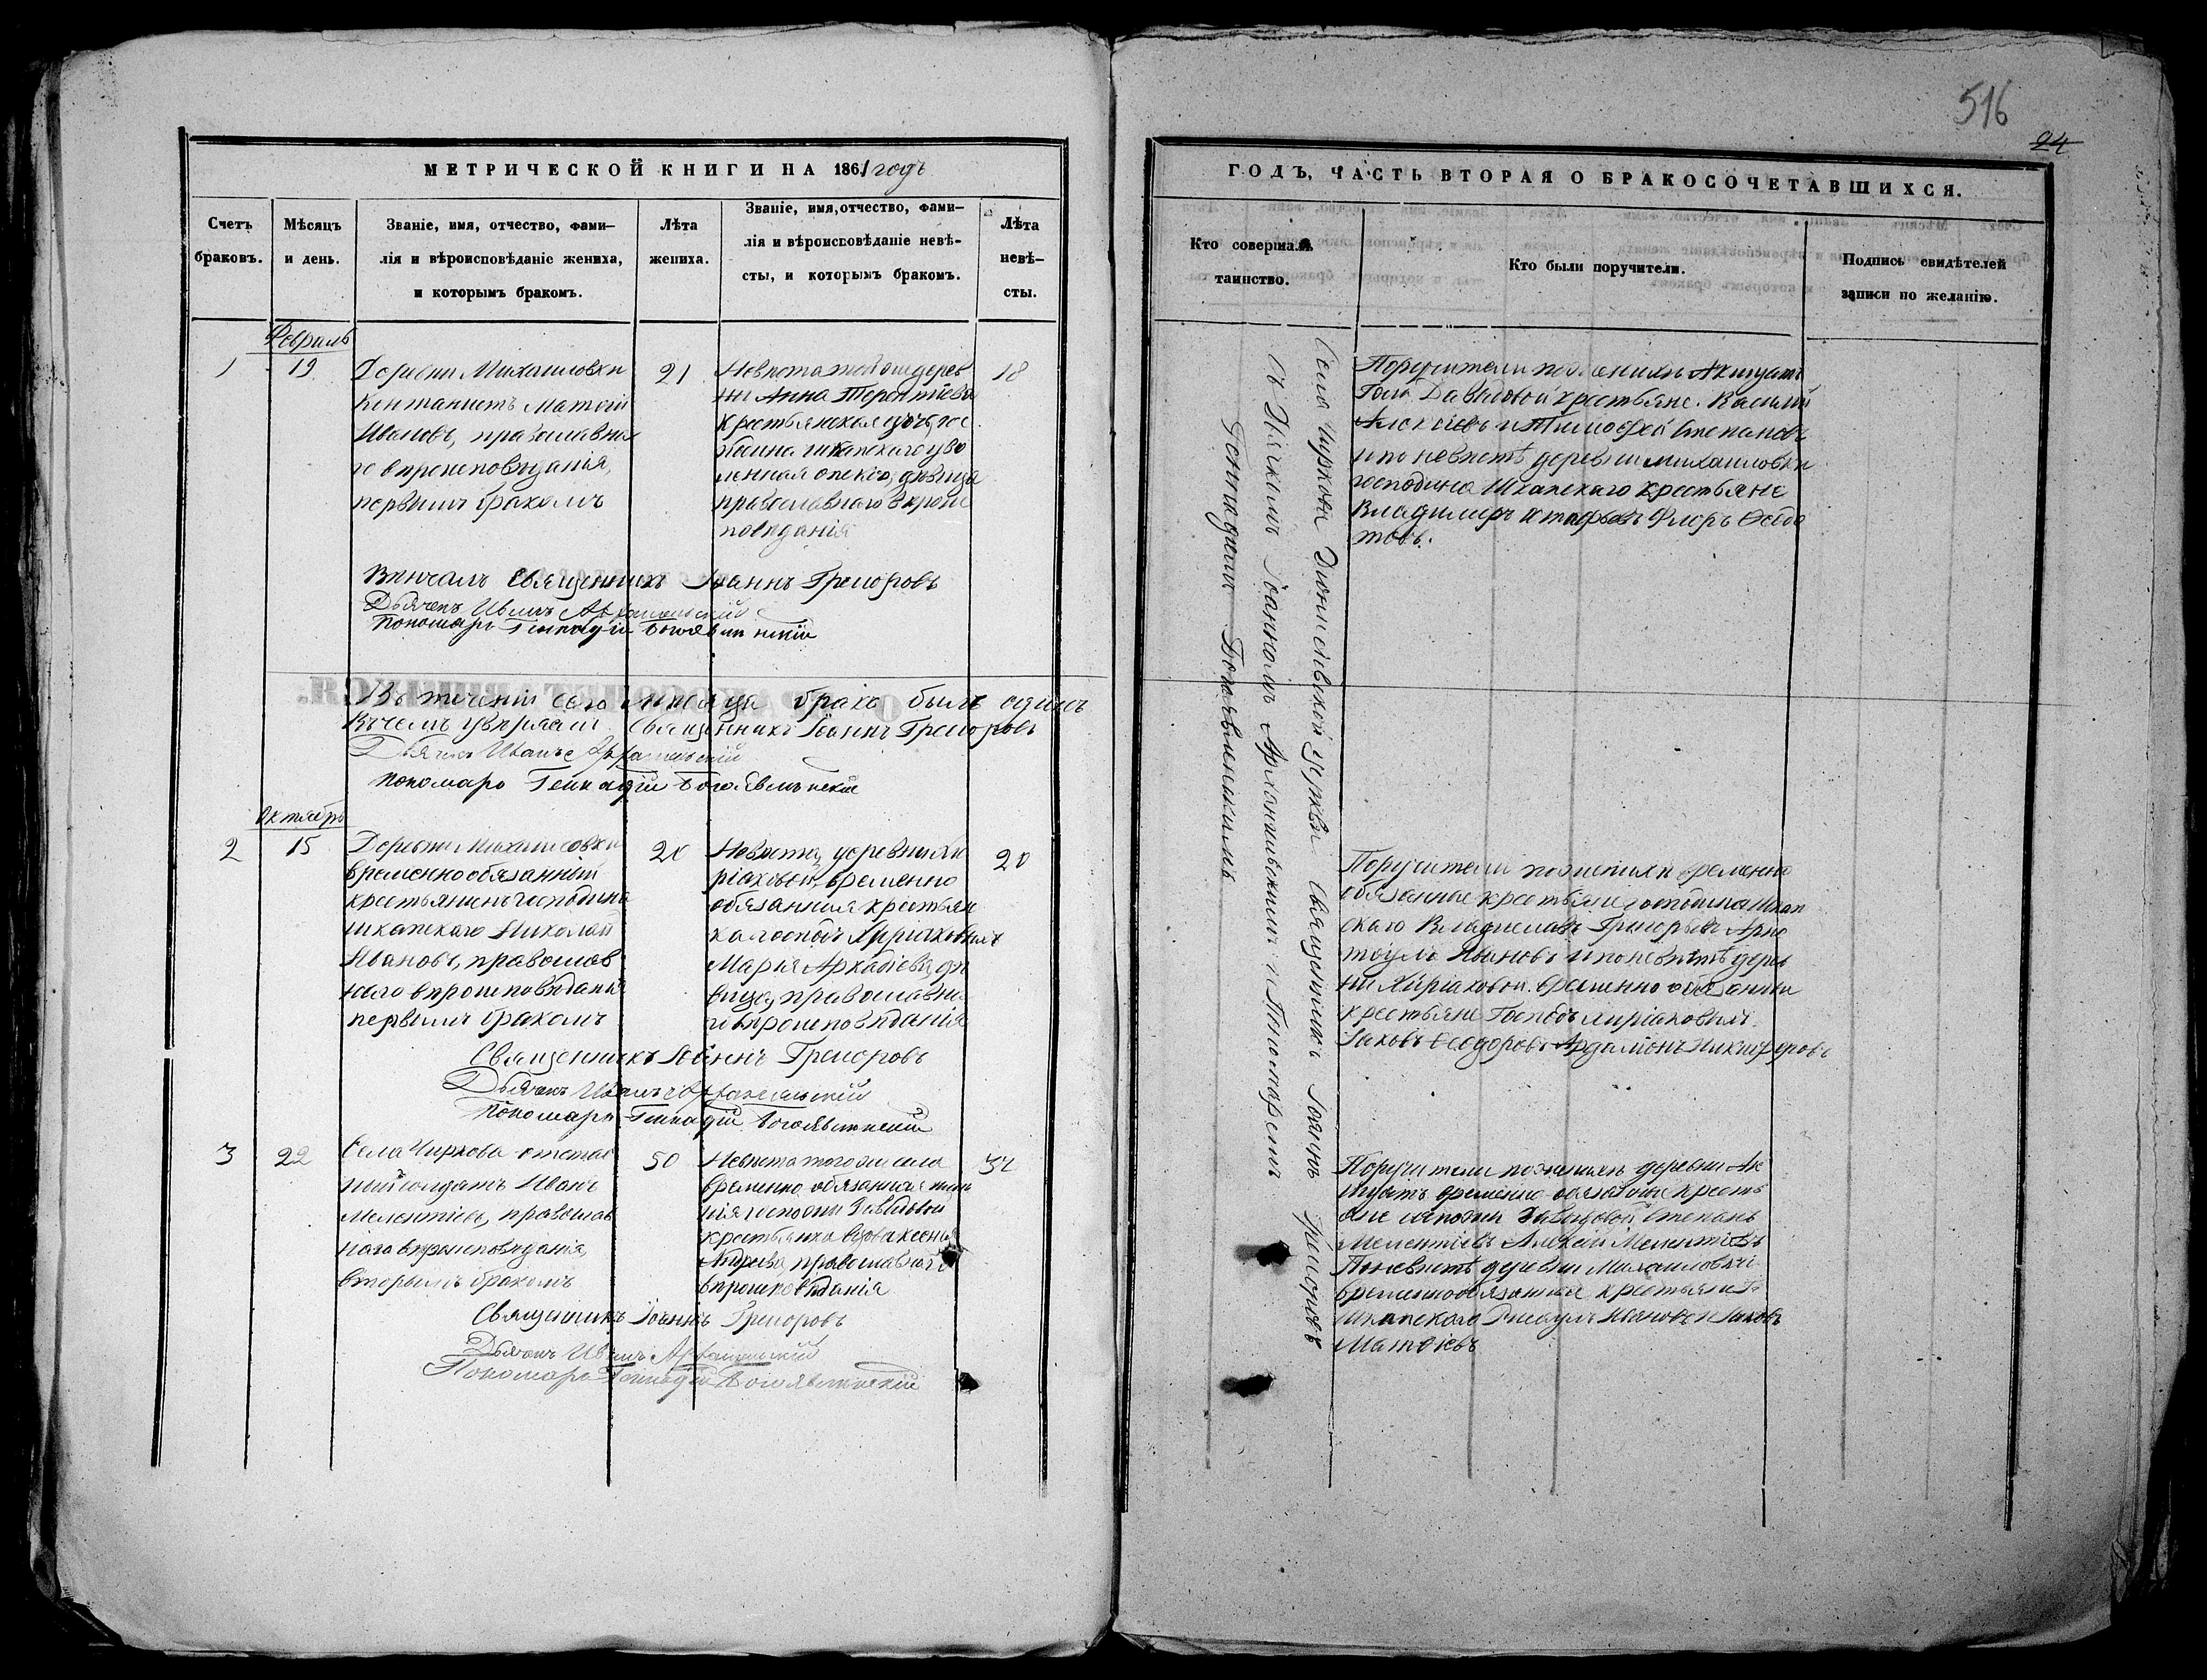 МЕТРИЧЕСКОЙ КНИГИ НА 1861 годъ
Счетъ
браковъ.
Мѣсяцъ
и день.
Званіе, имя, отчество, фами-
лія и вѣроисповѣданіе жениха,
и которымъ бракомъ.
Лѣта
жениха.
Званіе, имя, отчество, фами-
лія и вѣроисповѣданіе невѣ-
сты, и которымъ бракомъ.
Лѣта
невѣ-
сты.
Февраль
1
19
Деревни Михаиловки
кантанистъ Матвѣй
Ивановъ, православна
го вѣроисповѣданія,
первымъ бракомъ
21
Невѣста той же дерев
ни Анна Терентіева
крестьянская дочь, гос
подина Шкапскаго уво
ленная дѣвица
православнаго вѣроис
повѣданія
18
Вѣнчалъ Священникъ Іоаннъ Григоровъ
Дьячекъ Иванъ Архангельскій
Пономарь Геннадій Богоявленскій
Въ теченіи сего мѣсяца бракъ былъ одинъ
Въ чемъ увѣряли Священникъ Іоаннъ Григоровъ
Дьячекъ Иванъ Архангельскій
Пономарь Геннадій Богоявленскій
Октябрь
2
15
Деревни Михаиловки
временнообязанный
крестьянинъ господина
Шкапскаго Николай
Ивановъ, православ
наго вѣроисповѣданія
первымъ бракомъ
20
Невѣста, деревни Ки
ріаковой, временно
обязанная крестьян
ка господъ Киріаковыхъ
Марья Аркадіева, дѣ
вица, православна
го вѣроисповѣданія
20
Священникъ Іоаннъ Григоровъ
Дьячекъ Иванъ Архангельскій
Пономарь Геннадій Богоявленскій
3
22
Села Чиркова отстав
ный солдатъ Иванъ
Мелентіевъ, православ
наго вѣроисповѣданія,
вторымъ бракомъ
50
Невѣста того же села
временно обязанная
госпожи Давыдовой
крестьянка вдова Ксенія
Андреева православнаго
вѣроисповѣданія
Священникъ Іоаннъ Григоровъ
Дьячекъ Иванъ Архангельскій
Пономарь Геннадій Богоявленскій
516
24
ГОДЪ, ЧАСТЬ ВТОРАЯ О БРАКОСОЧЕТАВШИХСЯ.
Кто совершалъ
таинство.
Кто были поручители.
Подпись свидѣтелей
записи по желанію.
Села Чиркова церкви Священникъ Іоаннъ Григоровъ
съ Дьячкомъ Іоанномъ Архангельскимъ и Пономаремъ
Геннадіемъ Богоявленскимъ
Поручители по женихѣ
Давыдовой крестьяне. Василій
Алексѣевъ и Тимоѳей Степановъ
и по невѣстѣ деревни Михаиловки
господина Шкапскаго крестьяне
Владимиръ Флоръ Ѳедо
товъ.
Поручители по женихѣ временно
обязанные крестьяне господина Шкап
скаго Владиславъ Григорьевъ
Ивановъ и по невѣстѣ дерев
ни Киріаковой. временно обязанные
крестьяне Господъ Киріаковыхъ.
Іаковъ Ѳеодоровъ Ардаліонъ Никифоровъ
Поручители по женихѣ деревни
временно обязанные кресть
яне госпожи Давыдовой Степанъ
Мелентіевъ Алексѣй Мелентіевъ
По невѣстѣ деревни Михаиловки
временнообязанные крестьяне Г.
Шкапскаго Ивановъ и Іаковъ
Матвѣевъ